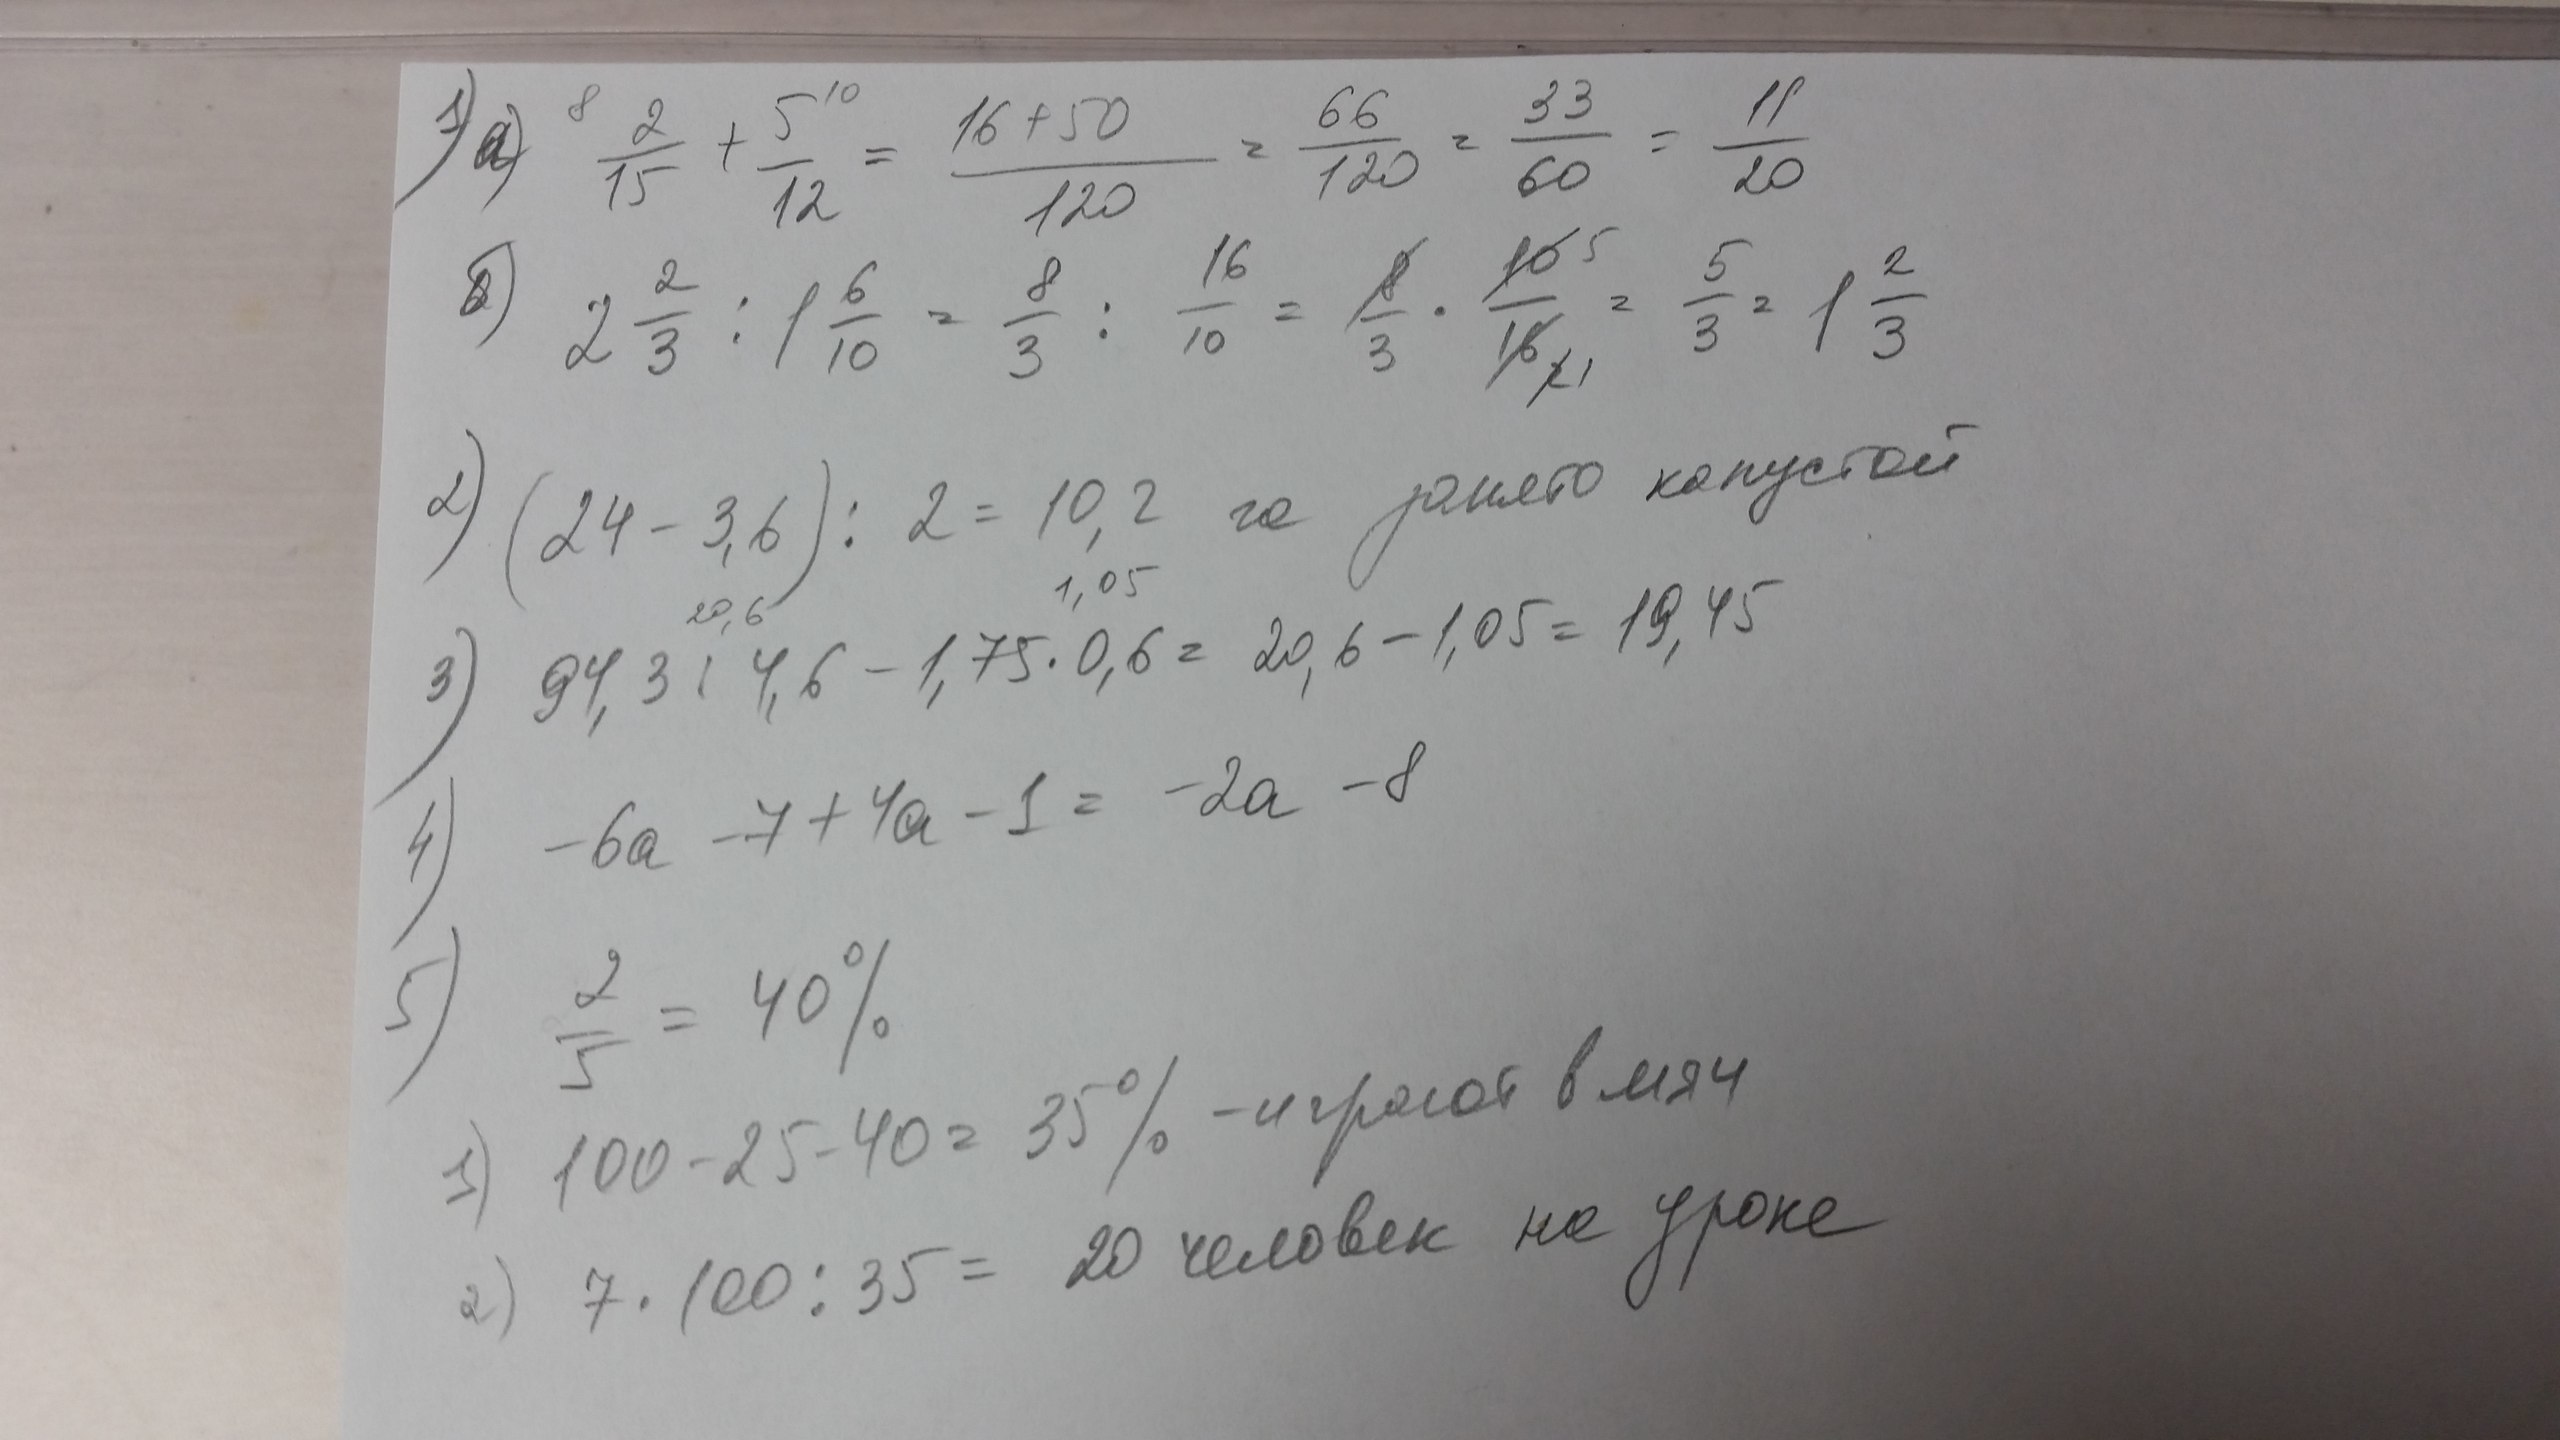 1) а) 8 2/15 + 5/12 10 = 16+50/120 = 66/120 = 33/60 = 11/20
б) 2 2/3 : 1 6/10 = 8/3 : 16/10 = 8/3 · 10/16 5 2 1 = 5/3 = 1 2/3
2) (24 - 3,6) : 2 = 10,2 га занято капустой
20,6 1,05
3) 94,3 : 4,6 - 1,75 · 0,6 = 20,6 - 1,05 = 19,45
4) -6a -7 + 4a - 1 = -2a -8
5) 2/5 = 40%
1) 100 - 25 - 40 = 35% - играют в мяч
2) 7 · 100 : 35 = 20 человек на уроке